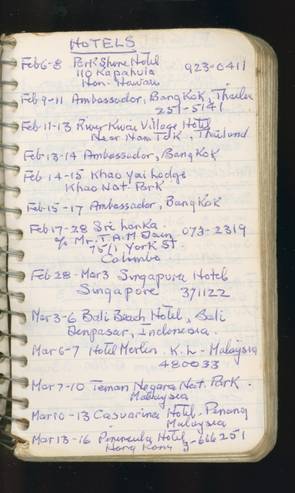 HOTELS
Feb 6-8 Park Shore Hotel 923-0411
110 Kapahulu
Hon. Hawaii
Feb 9-11 Ambassador, Bangkok, Thailand
251-5141
Feb 11-13 River Kwai Village Hotel
Near Nam Tok, Thailand
Feb 13-14 Ambassador, Bangkok
Feb 14-15 Khao Yai Lodge
Khao Nat. Park
Feb 15-17 Ambassador, Bangkok
Feb 17-28 Sri Lanka. 073-2319
c/o Mr. T.A.M. Jain
75/1 York St.
Colombo
Feb 28-Mar 3 Singapura Hotel
Singapore 371122
Mar 3-6 Bali Beach Hotel, Bali
Denpasar, Indonesia.
Mar 6-7 Hotel Merlin. K.L - Malaysia
480033
Mar 7-10 Teman Negara Nat. Park.
Malaysia
Mar 10-13 Casuarina Hotel - Penang
Malaysia
Mar 13-16 Peninsula Hotel, 3-666251
Hong Kong